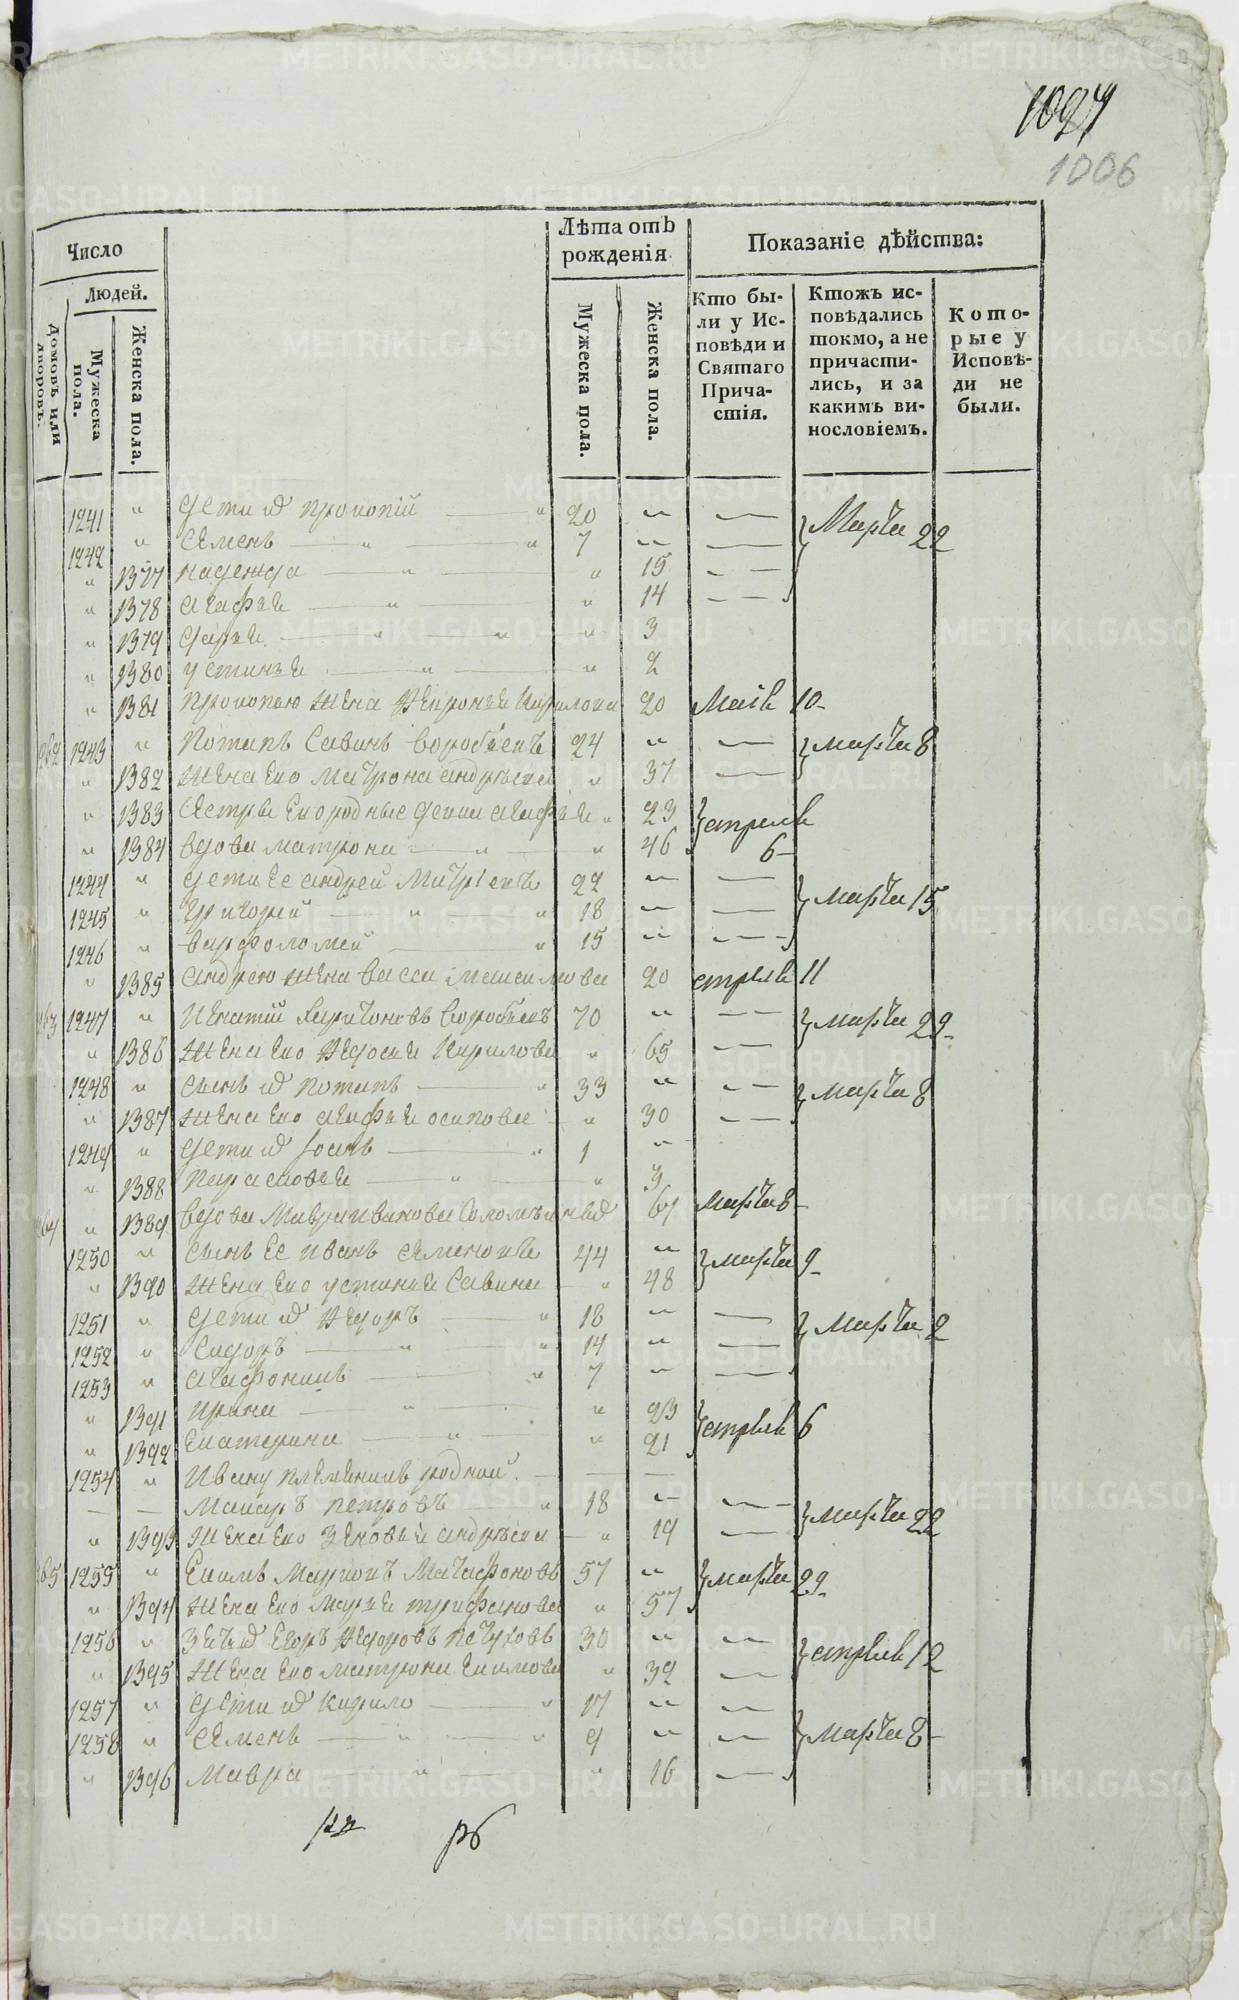 1094
1006
Число
Лѣта отъ рожденія
Показаніе дѣйства:
Людей.
Домовъ или дворовъ.
Мужеска пола.
Женска пола.
Мужеска пола.
Женска пола.
Кто были у Исповѣди и Святаго Причастія.
Ктожъ исповѣдались токмо, а не причастились, и за какимъ винословіемъ.
Которые у Исповѣди не были.
1241 " Дети их Прокопій " 20 "
Марта 22
1242 " Семенъ " " 7 "
" 1377 Надежда " " 15
" 1378 Агафья " " 14
" 1379 Дарья " " " 3
" 1380 Устинья " " 2
" 1381 Прокопию жена Февронья Кирилова 20
1243 " Потапъ Савинъ Воробьевъ 24 "
марта 8
" 1382 Жена Ево Матрона андрѣева " 37
" 1383 Сестры Ево родные агафья " 23
апреля 6
" 1384 вдова матрона " " 46
1244 " Дети Ее андрей 22 "
марта 15
1245 " Григорей " " 18 "
1246 " варфоломей " 15 "
" 1385 андрею жена васса максимова 20 апреля 11
1247 " Игнатий Харитоновъ Воробьевъ 70 "
марта 29
" 1386 Жена Ево Федосья Кирилова " 65
1248 " сынъ их потапъ " 33 "
марта 8
" 1387 Жена Ево агафья осипова " 30
1249 " Дети их " 1 "
" 1388 Парасковья " " 3
" 1389 вдова Мавра Иванова марта 8
1250 " сынъ Ее Иванъ Семеновъ 44 "
марта 9
" 1390 Жена Ево устинья Савина " 48
1251 " Дети их Федоръ " 18 "
марта 2
1252 " Сидоръ " " 14 "
1253 " 7 "
" 1391 Ирина " " 23
апреля 6
" 1392 Екатерина " " 21
1254 " Ивану племянникъ родной
Макаръ Петровъ " 18 "
марта 22
" 1393 Жена Ево Зеновья андрѣева " 19
1255 " Екимъ 57 "
марта 29
" 1394 Жена Ево марья трифанова " 57
1256 " Зять их Егоръ Федоровъ Петуховъ 30 "
апреля 12
" 1395 Жена Ево матрона Екимова " 32
1257 " Дети их Кирило " 17 "
1258 " Семенъ " " 9 "
марта 8
" 1396 Мавра " " 16